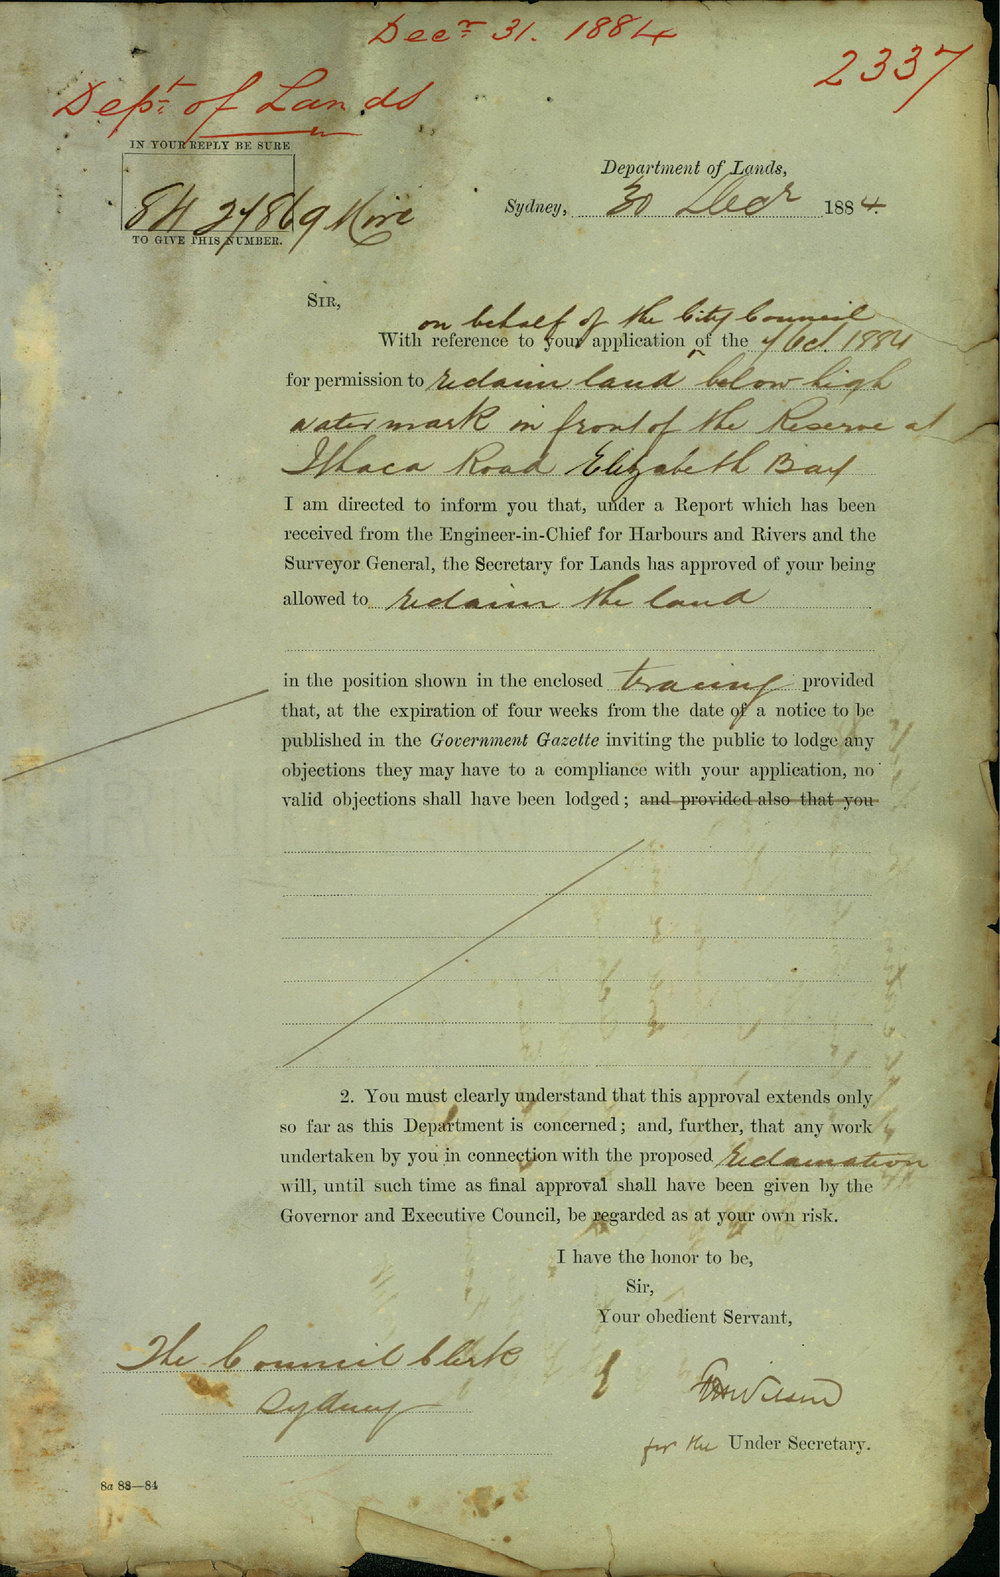 Decr 31. 1884
2337
Dept of Lands
IN YOUR REPLY BE SURE
84 27869 Misc
TO GIVE THIS NUMBER.
Department of Lands,
Sydney, 30 Decr 1884.
SIR,
on behalf of the City Council
With reference to your application of the 7 Oct. 1884
for permission to reclaim land below high
water mark in front of the Reserve at
Ithaca Road Elizabeth Bay
I am directed to inform you that, under a Report which has been
received from the Engineer-in-Chief for Harbours and Rivers and the
Surveyor General, the Secretary for Lands has approved of your being
allowed to reclaim the land
in the position shown in the enclosed tracing provided
that, at the expiration of four weeks from the date of a notice to be
published in the Government Gazette inviting the public to lodge any
objections they may have to a compliance with your application, no
valid objections shall have been lodged; and provided also that you
2. You must clearly understand that this approval extends only
so far as this Department is concerned; and, further, that any work
undertaken by you in connection with the proposed reclamation
will, until such time as final approval shall have been given by the
Governor and Executive Council, be regarded as at your own risk.
I have the honor to be,
Sir,
Your obedient Servant,
The Council Clerk
Sydney
Wilson
for the Under Secretary.
8a 83—84